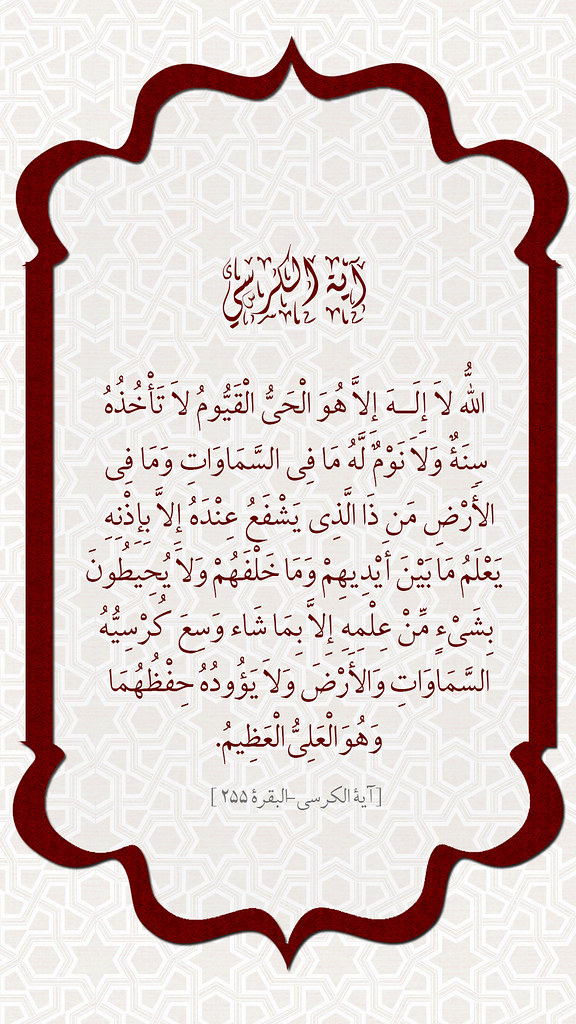 آيَة الكُرْسِي
اللّهُ لاَ إِلَـهَ إِلاَّ هُوَ الْحَيُّ الْقَيُّومُ لاَ تَأْخُذُهُ
سِنَةٌ وَلاَ نَوْمٌ لَّهُ مَا فِی السَّمَاوَاتِ وَمَا فِی
الأَرْضِ مَن ذَا الَّذِی يَشْفَعُ عِنْدَهُ إِلاَّ بِإِذْنِهِ
يَعْلَمُ مَا بَيْنَ أَيْدِيهِمْ وَمَا خَلْفَهُمْ وَلاَ يُحِيطُونَ
بِشَیْءٍ مِّنْ عِلْمِهِ إِلاَّ بِمَا شَاء وَسِعَ كُرْسِيُّهُ
السَّمَاوَاتِ وَالأَرْضَ وَلاَ يَؤُودُهُ حِفْظُهُمَا
وَهُوَ الْعَلِیُّ الْعَظِيمُ.
[آیة الکرسی-البقرة ۲۵۵ ]